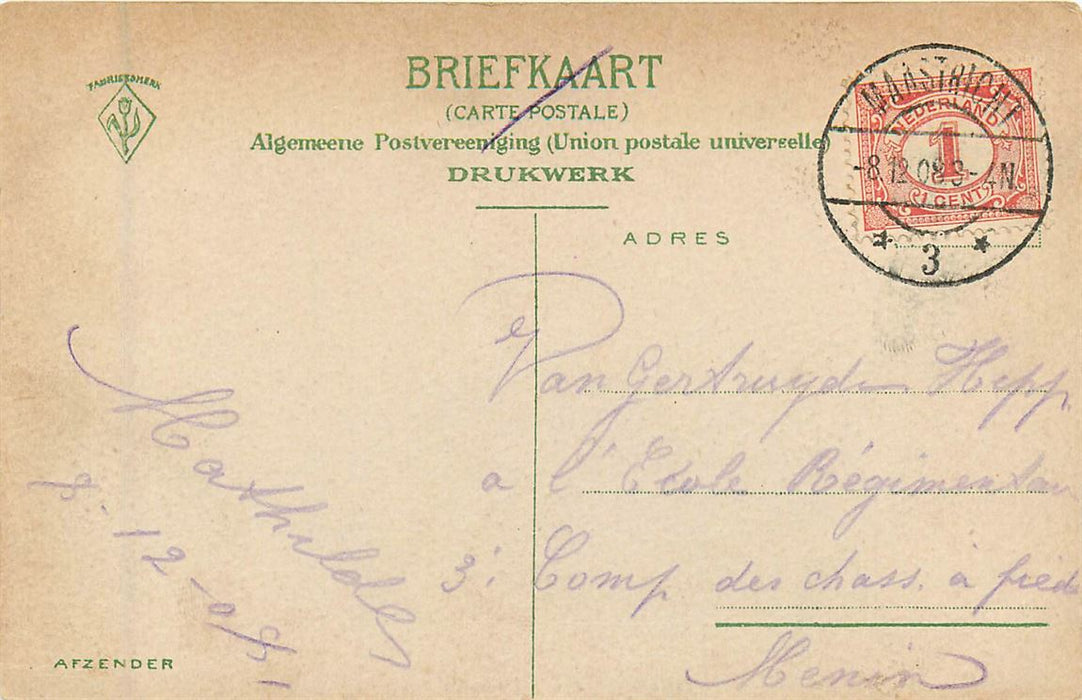 FABRIEKSMERK
BRIEFKAART
(CARTE POSTALE)
Algemeene Postvereeniging (Union postale universelle)
DRUKWERK
MAASTRICHT
-8.12.08 3-4N.
3
NEDERLAND
1
1 CENT
ADRES
Van Gertruyde Hepp
a l'Ecole Régimentair
3: Comp des chass. a pied
Menin
Mathilde
8-12-08
AFZENDER